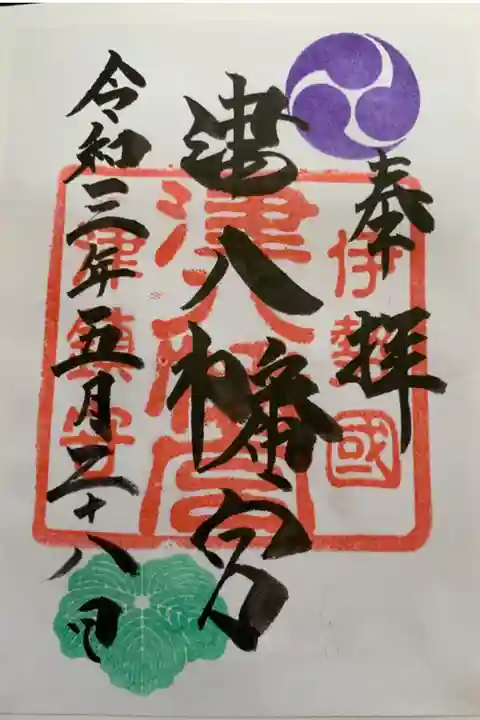 奉拝
津八幡宮
令和三年五月二十八日
伊勢國
津八幡宮
津鎮守